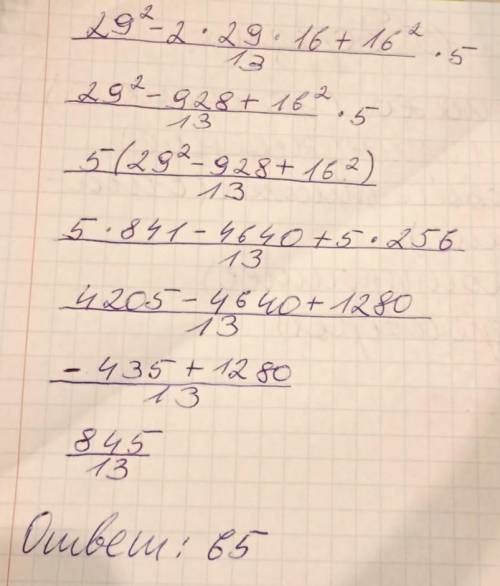 29² - 2 · 29 · 16 + 16² / 13 · 5
29² - 928 + 16² / 13 · 5
5(29² - 928 + 16²) / 13
5 · 841 - 4640 + 5 · 256 / 13
4205 - 4640 + 1280 / 13
- 435 + 1280 / 13
845 / 13
Ответ: 65